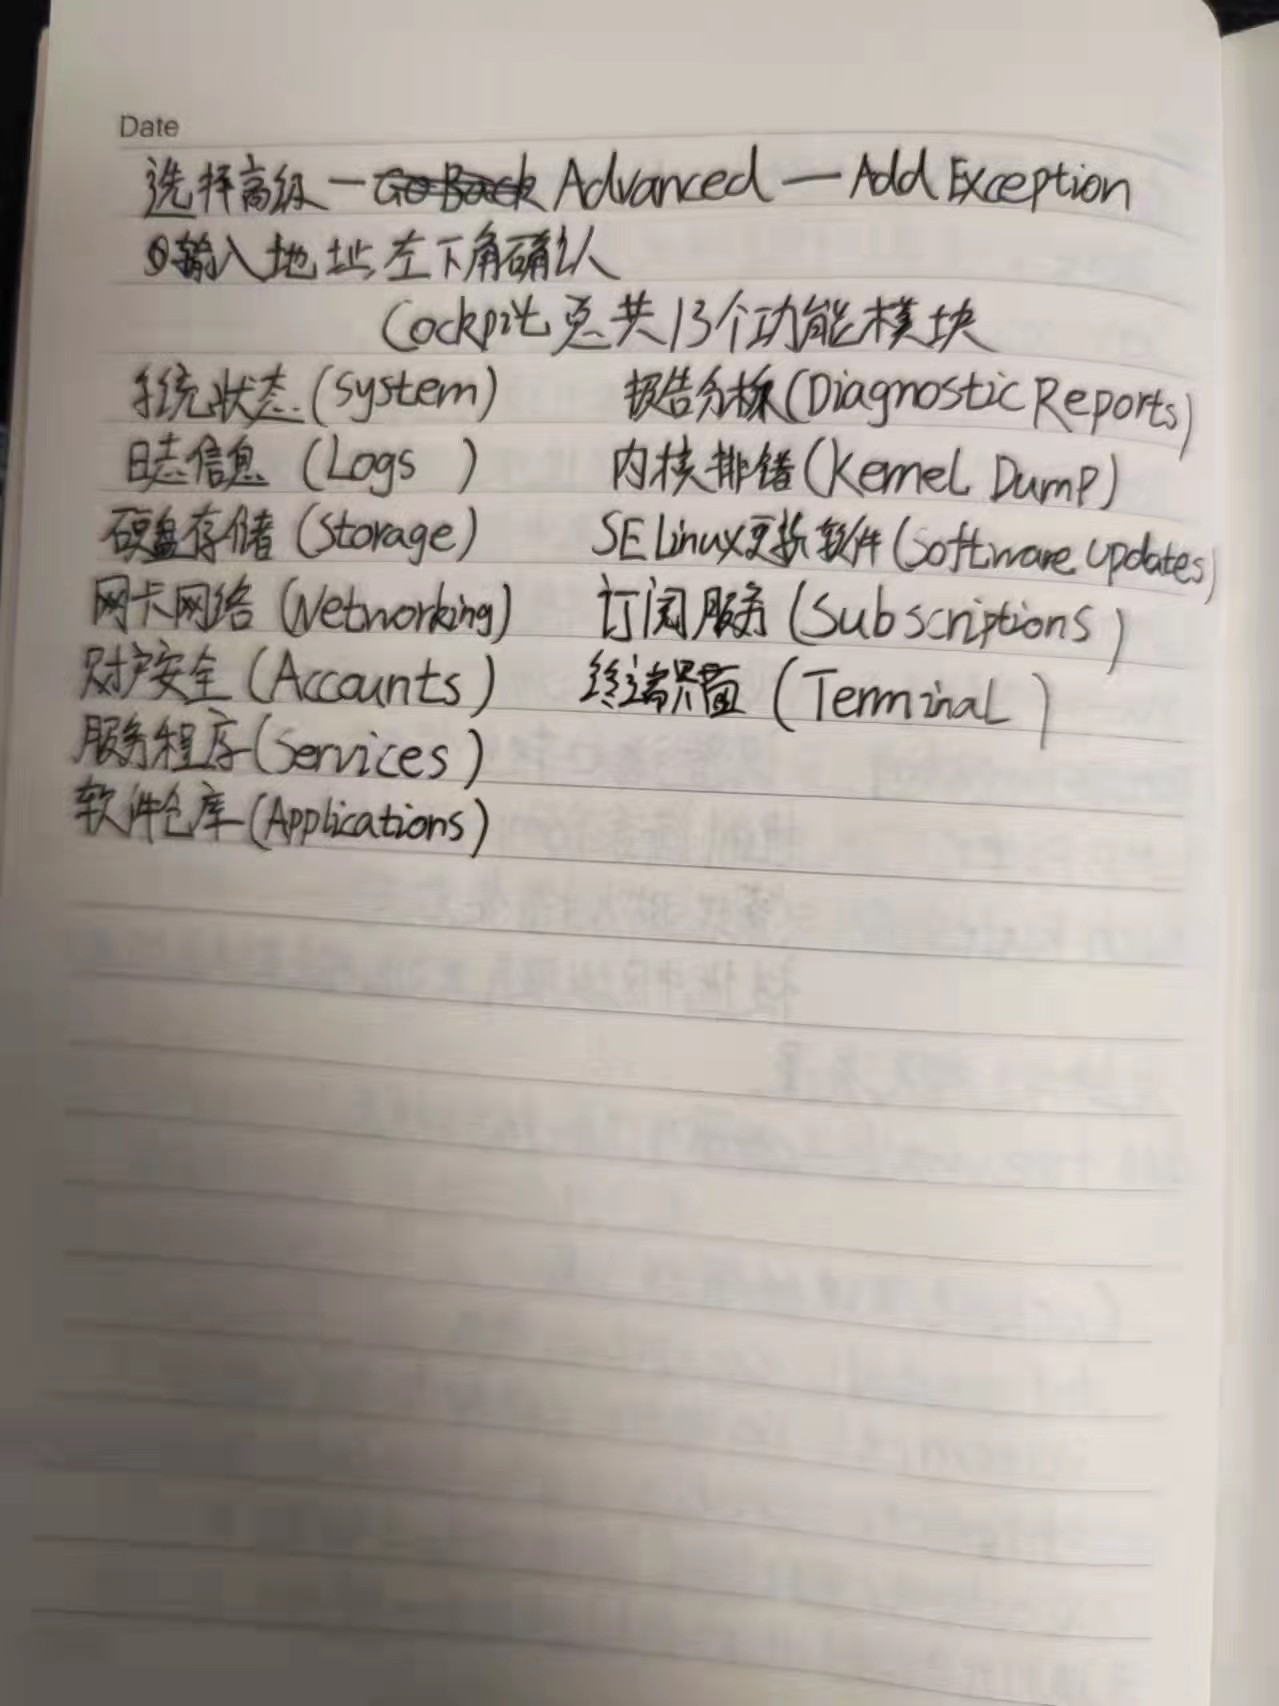 Date
选择高级—Advanced—Add Exception
⑤输入地址左下角确认
Cockpit总共13个功能模块
系统状态(System)
日志信息(Logs)
硬盘存储(Storage)
网卡网络(Networking)
财户安全(Accounts)
服务程序(Services)
软件仓库(Applications)
报告分析(Diagnostic Reports)
内核排错(Kernel Dump)
SELinux更新软件(Software Updates)
订阅服务(Subscriptions)
终端界面(Terminal)